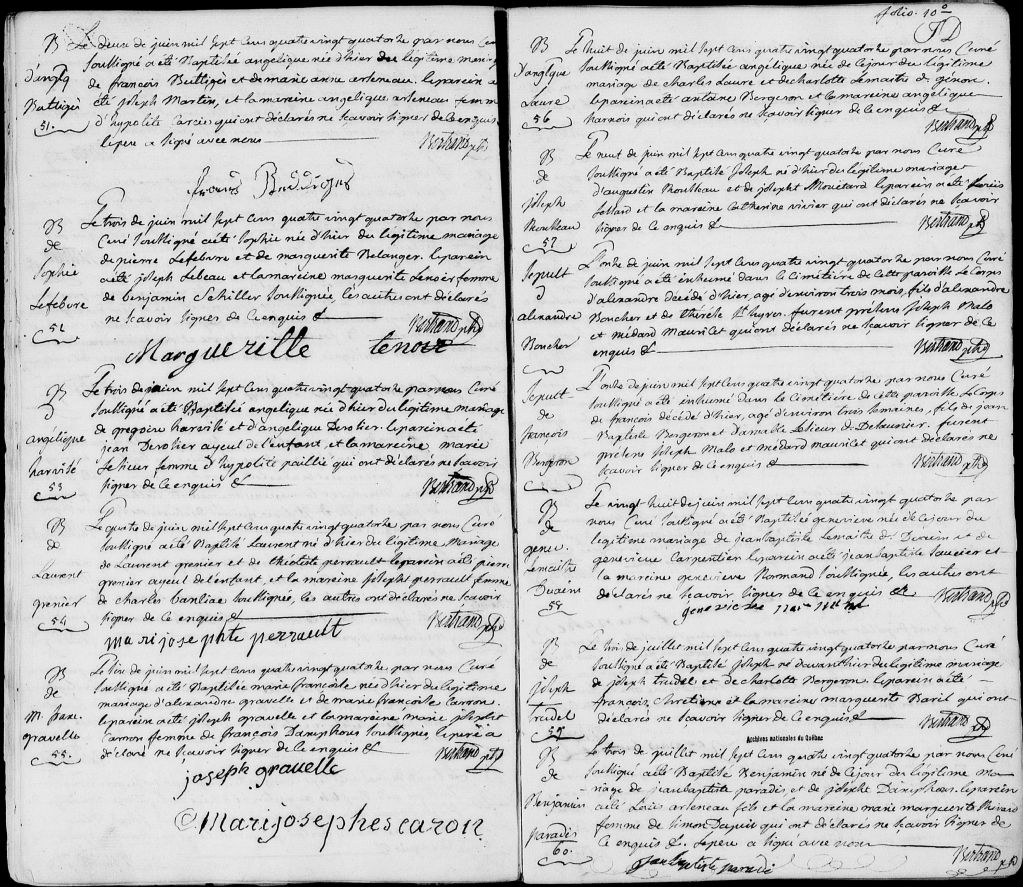 B
d'angelq
Buttiges
51.
Le deux de juin mil sept cens quatre vingt quatorze par nous Curé
soussigné a été Baptisée angélique née d'hier du légitime mariage
de françois Buttiges et de marie anne arteneau. le parein a
été Joseph Martin, et la mareine angelique arteneau femme
d'hypolite Carcie qui ont déclarés ne sçavoir signer de ce enquis
le pere a signé avec nous
Bertrand ptre
B
de
Sophie
Lefebvre
52
Le trois de juin mil sept cens quatre vingt quatorze par nous
Curé soussigné a été Sophie née d'hier du légitime mariage
de pierre Lefebvre et de marguerite Belanger. le parein
a été joseph Lebeau et la mareine marguerite Lenoir femme
de benjamin Schiller soussignée, les autres ont déclarés
ne sçavoir signer de ce enquis &
Bertrand ptre
Marguerille lenoir
B
D
angelique
harvité
53
Le trois de juin mil sept cens quatre vingt quatorze par nous Curé
soussigné a été Baptisée angelique née d'hier du légitime mariage
de gregoire harvité et d'angelique Derotier. le parein a été
jean Derotier ayeul de l'enfant et la mareine marie
Lesieur femme d'hypolite paillié qui ont déclarés ne sçavoir
signer de ce enquis &
Bertrand ptre
B
de
Laurent
grenier
54
Le quatre de juin mil sept cens quatre vingt quatorze par nous Curé
soussigné a été Baptisé Laurent né d'hier du légitime Mariage
de Laurent grenier et de théotiste perrault le parein a été pierre
grenier ayeul de l'enfant, et la mareine Joseph perrault femme
de charles banliac soussignée, les autres ont déclarés ne sçavoir
signer de ce enquis &
Bertrand ptre
marijosephte perrault
B
de
M. franc.
gravelle
55.
Le six de juin mil sept cens quatre vingt quatorze par nous Curé
soussigné a été Baptisée marie françoise née d'hier du légitime
mariage d'alexandre gravelle et de marie françoise Carron.
le parein a été joseph gravelle et la mareine marie josepht
Carron femme de françois Damphous soussignés, le pere a
déclaré ne sçavoir signer de ce enquis &
Bertrand ptre
joseph gravelle
Marijosephes caron
folio. 10e
B
D'angelque
Laure
56
Le huit de juin mil sept cens quatre vingt quatorze par nous Curé
soussigné a été Baptisée angelique née de ce jour du légitime
mariage de charles Laure et de charlotte Lemaitre d. génon.
le parein a été antoine Bergeron et la mareine angelique
harnois qui ont déclarés ne sçavoir signer de ce enquis &
Bertrand ptre
B
de
joseph
Rousseau
57
Le neuf de juin mil sept cens quatre vingt quatorze par nous Curé
soussigné a été Baptisé Joseph né d'hier du légitime mariage
d'augustin Rousseau et de josepht Mouétard le parein a été
et la mareine Catherine vivier qui ont déclarés ne sçavoir
signer de ce enquis &
Bertrand ptre
Sepult
D
alexandre
Boucher
L'onze de juin mil sept cens quatre vingt quatorze par nous Curé
soussigné a été inhumé dans le Cimetière de cette paroisse Le Corps
d'alexandre décédé d'hier, agé d'environ trois mois, fils d'alexandre
Boucher et de thérèse St. furent présens Joseph Malo
et médard Mauricet qui ont déclarés ne sçavoir signer de Ce
enquis &
Bertrand ptre
Sepult
de
françois
Bergeron
L'onze de juin mil sept cens quatre vingt quatorze par nous Curé
soussigné a été inhumé dans le Cimetière de cette paroisse Le Corps
de françois décédé d'hier, agé d'environ trois semaines, fils de jean
Baptiste Bergeron et d'amable Lesieur de furent
présens Joseph Malo et médard mauricet qui ont déclarés ne
sçavoir signer de ce enquis &
Bertrand ptre
B
de
genev.
Lemaitre
Duaim
58
Le vingt huit de juin mil sept cens quatre vingt quatorze par
nous Curé soussigné a été Baptisée genevieve née de ce jour du
légitime mariage de jean baptiste Lemaitre d. Duaim et de
genevieve Carpentier le parein a été jean baptiste saucier et
la mareine genevieve Normand soussignée, les autres ont
déclarés ne sçavoir signer de ce enquis &
Bertrand ptre
genevieve
B
de
joseph
trudel
59
Le trois de juillet mil sept cens quatre vingt quatorze par nous Curé
soussigné a été Baptisé Joseph né d'avanthier du légitime mariage
de joseph trudel et de charlotte Bergeron. le parein a été
françois Chrétien et la mareine marguerite Baril qui ont
déclarés ne sçavoir signer de ce enquis &
Bertrand ptre
Archives nationales du Québec
B
de
Benjamin
paradis
60.
Le trois de juillet mil sept cens quatre vingt quatorze par nous Curé
soussigné a été Baptisé Benjamin né de ce jour du légitime ma-
riage de jean baptiste paradis, et de josephe Damphous. le parein
a été Loüis arteneau fils et la mareine marie marguerite
femme de simon Dupuis qui ont déclarés ne sçavoir signer de
ce enquis &. le pere a signé avec nous
Bertrand ptre
jan baptiste paradi